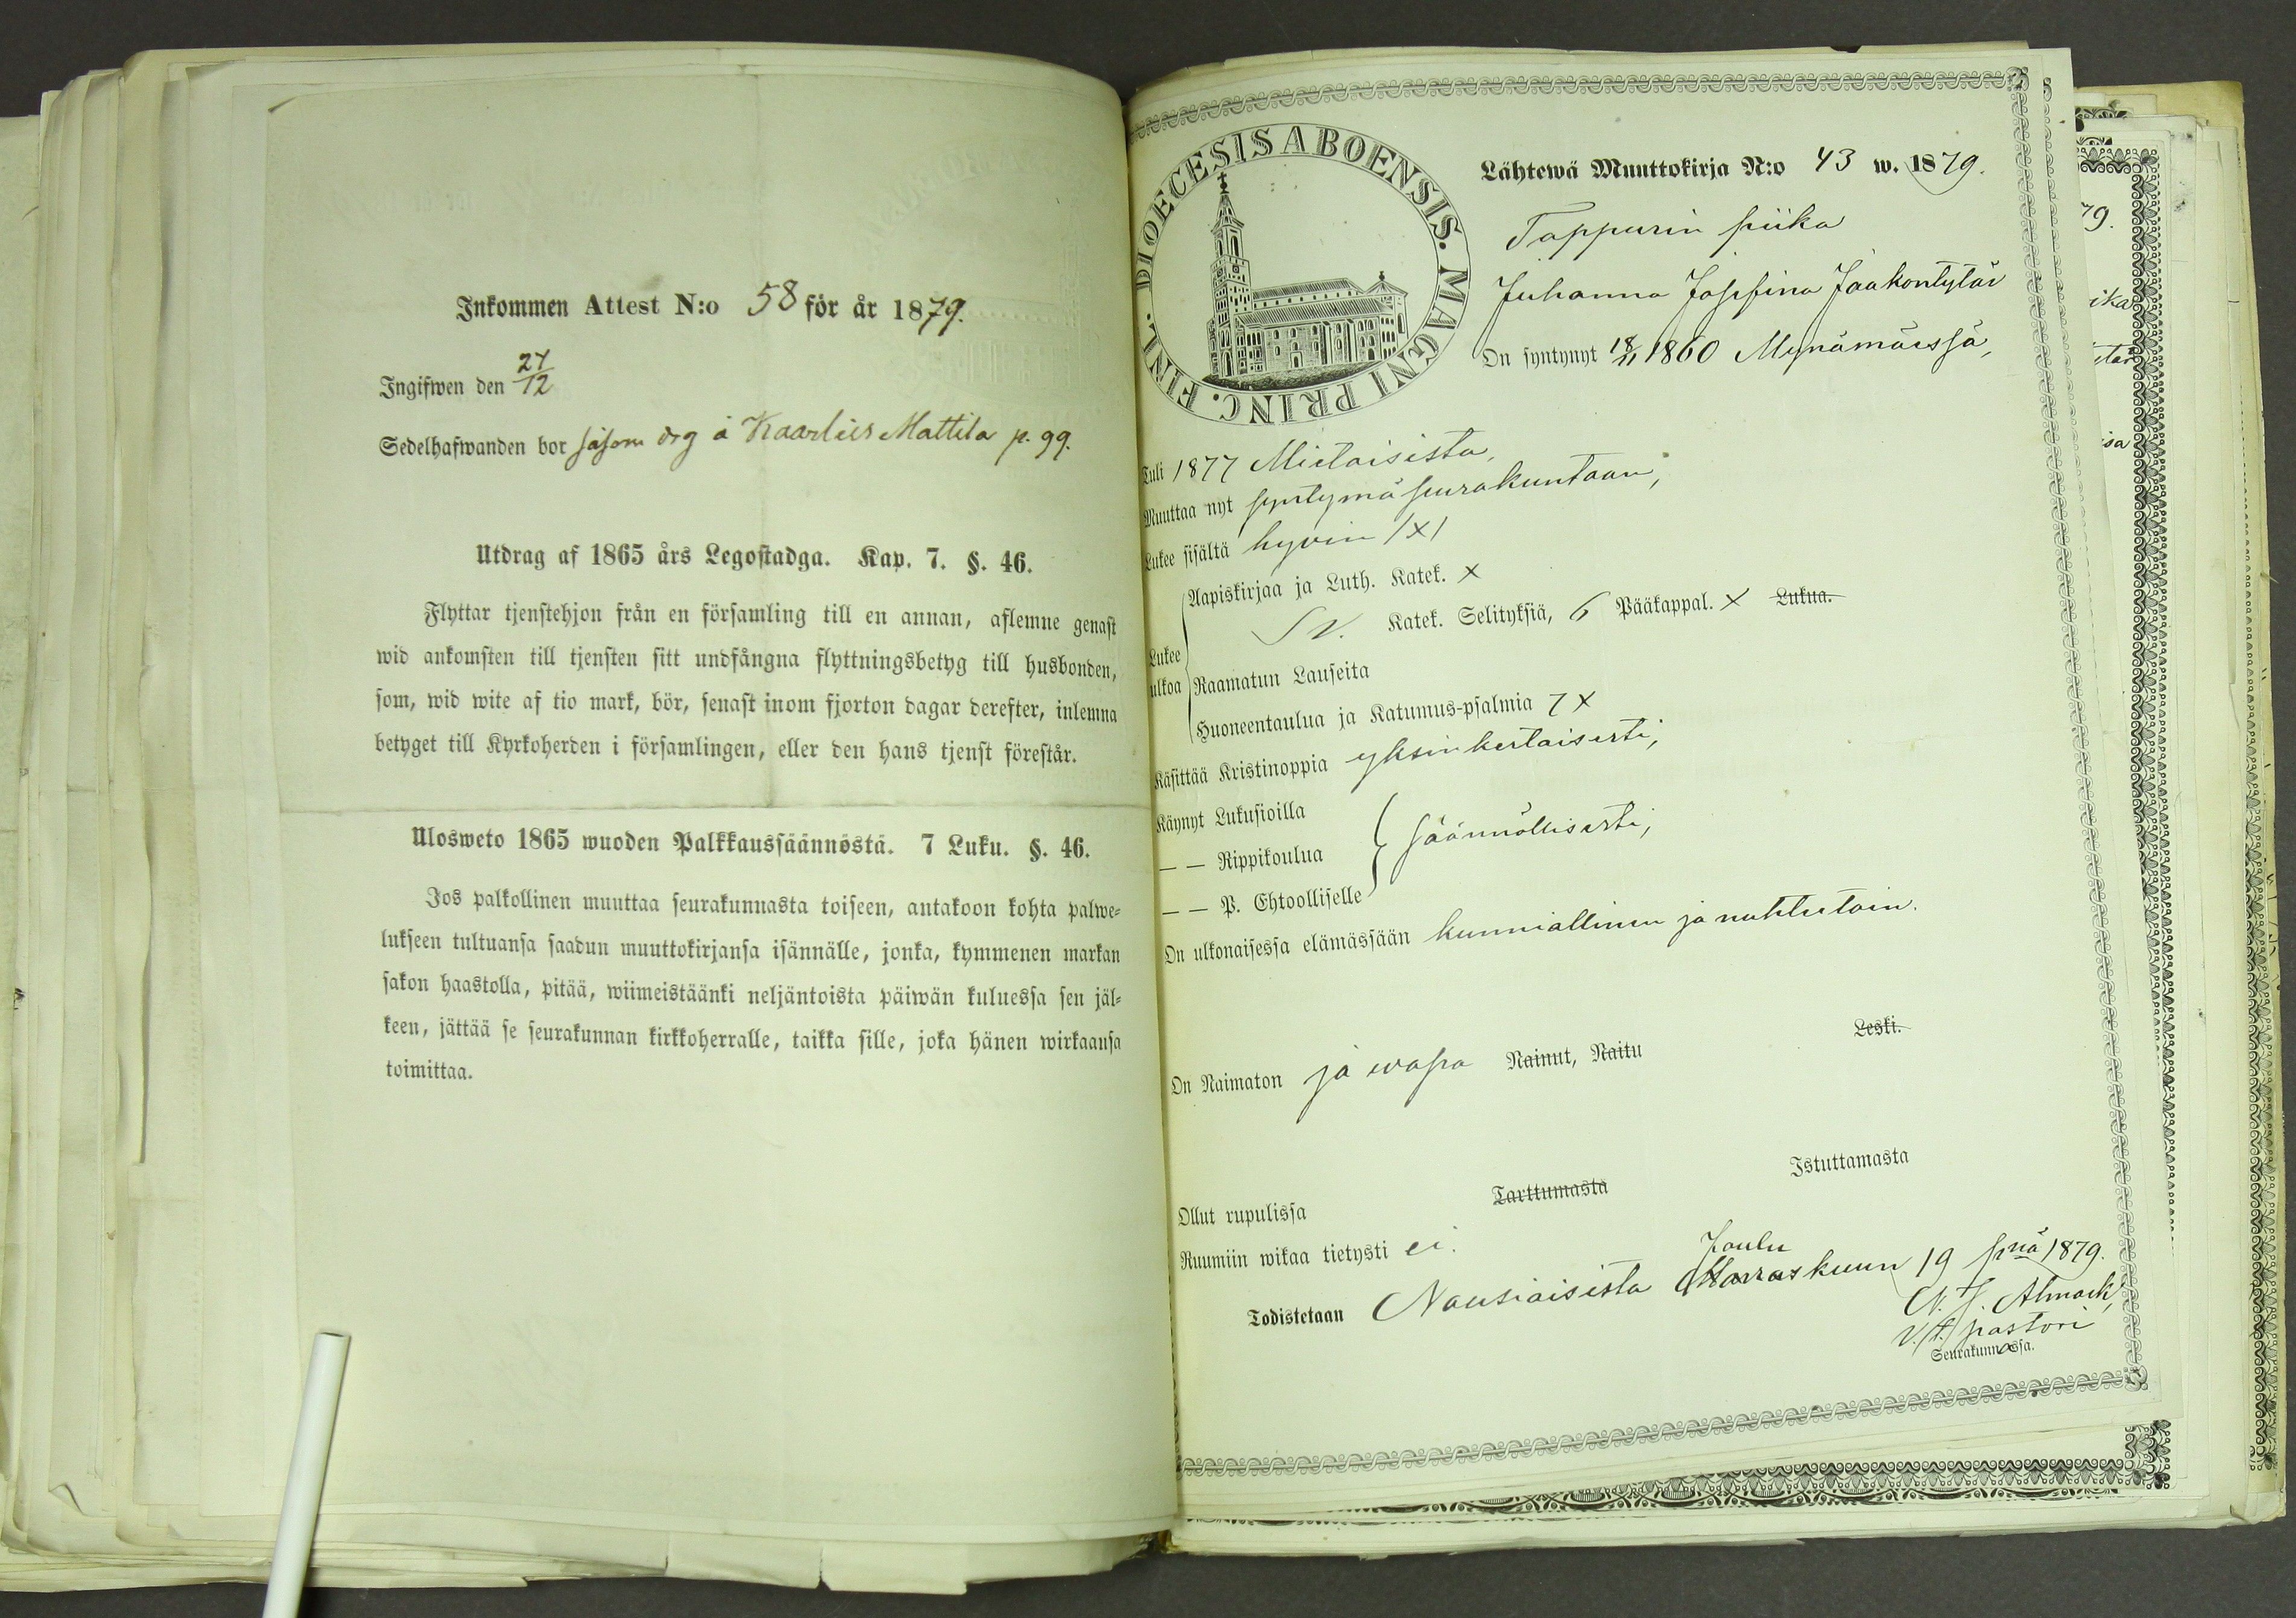 Inkommen Attest N:o 58 för år 1879.
Ingifwen den 27/12
Sedelhafwanden bor såsom drg å Kaarlais Mattila p. 99.
Utdrag af 1865 års Legostadga. Kap. 7. §. 46.
Flyttar tjenstehjon från en församling till en annan, aflemne genast
wid ankomsten till tjensten sitt undfångna flyttningsbetyg till husbonden,
som, wid wite af tio mark, bör, senast inom fjorton dagar derefter, inlemna
betyget till Kyrkoherden i församlingen, eller den hans tjenst förestår.
Ulosweto 1865 wuoden Palkkaussäännöstä. 7 Luku. §. 46.
Jos palkollinen muuttaa seurakunnasta toiseen, antakoon kohta palwe-
lukseen tultuansa saadun muuttokirjansa isännälle, jonka, kymmenen markan
sakon haastolla, pitää, wiimeistäänki neljäntoista päiwän kuluessa sen jäl-
keen, jättää se seurakunnan kirkkoherralle, taikka sille, joka hänen wirkaansa
toimittaa.
FINL. DIOECESIS ABOENSIS. MAGNI PRINC.
Lähtewä Muuttokirja N:o 43 w. 1879.
Tappurin piika
Juhanna Josefina Jaakontytär
On syntynyt 18/11 1860 Mynämäessä,
Tuli 1877 Mietoisista,
Muuttaa nyt syntymäseurakuntaan,
Lukee sisältä hyvin /X/
Lukee ulkoa
Aapiskirjaa ja Luth. Katek. X
Sv. Katek. Selityksiä, 6 Pääkappal. X Lukua.
Raamatun Lauseita
Huoneentaulua ja Katumus-psalmia 7 X
Käsittää Kristinoppia yksinkertaisesti,
Käynyt Lukusioilla
— — Rippikoulua säännöllisesti,
— — P. Ehtoolliselle
On ulkonaisessa elämässään kunniallinen ja nuhteetoin.
On Naimaton ja wapa Nainut, Naitu Leski.
Ollut rupulissa Tarttumasta Istuttamasta
Ruumiin wikaa tietysti ei.
Joulu
Todistetaan Nousiaisista Marraskuun 19 pnä 1879.
v.t. pastori
Seurakunnassa.
79.
ika
isa